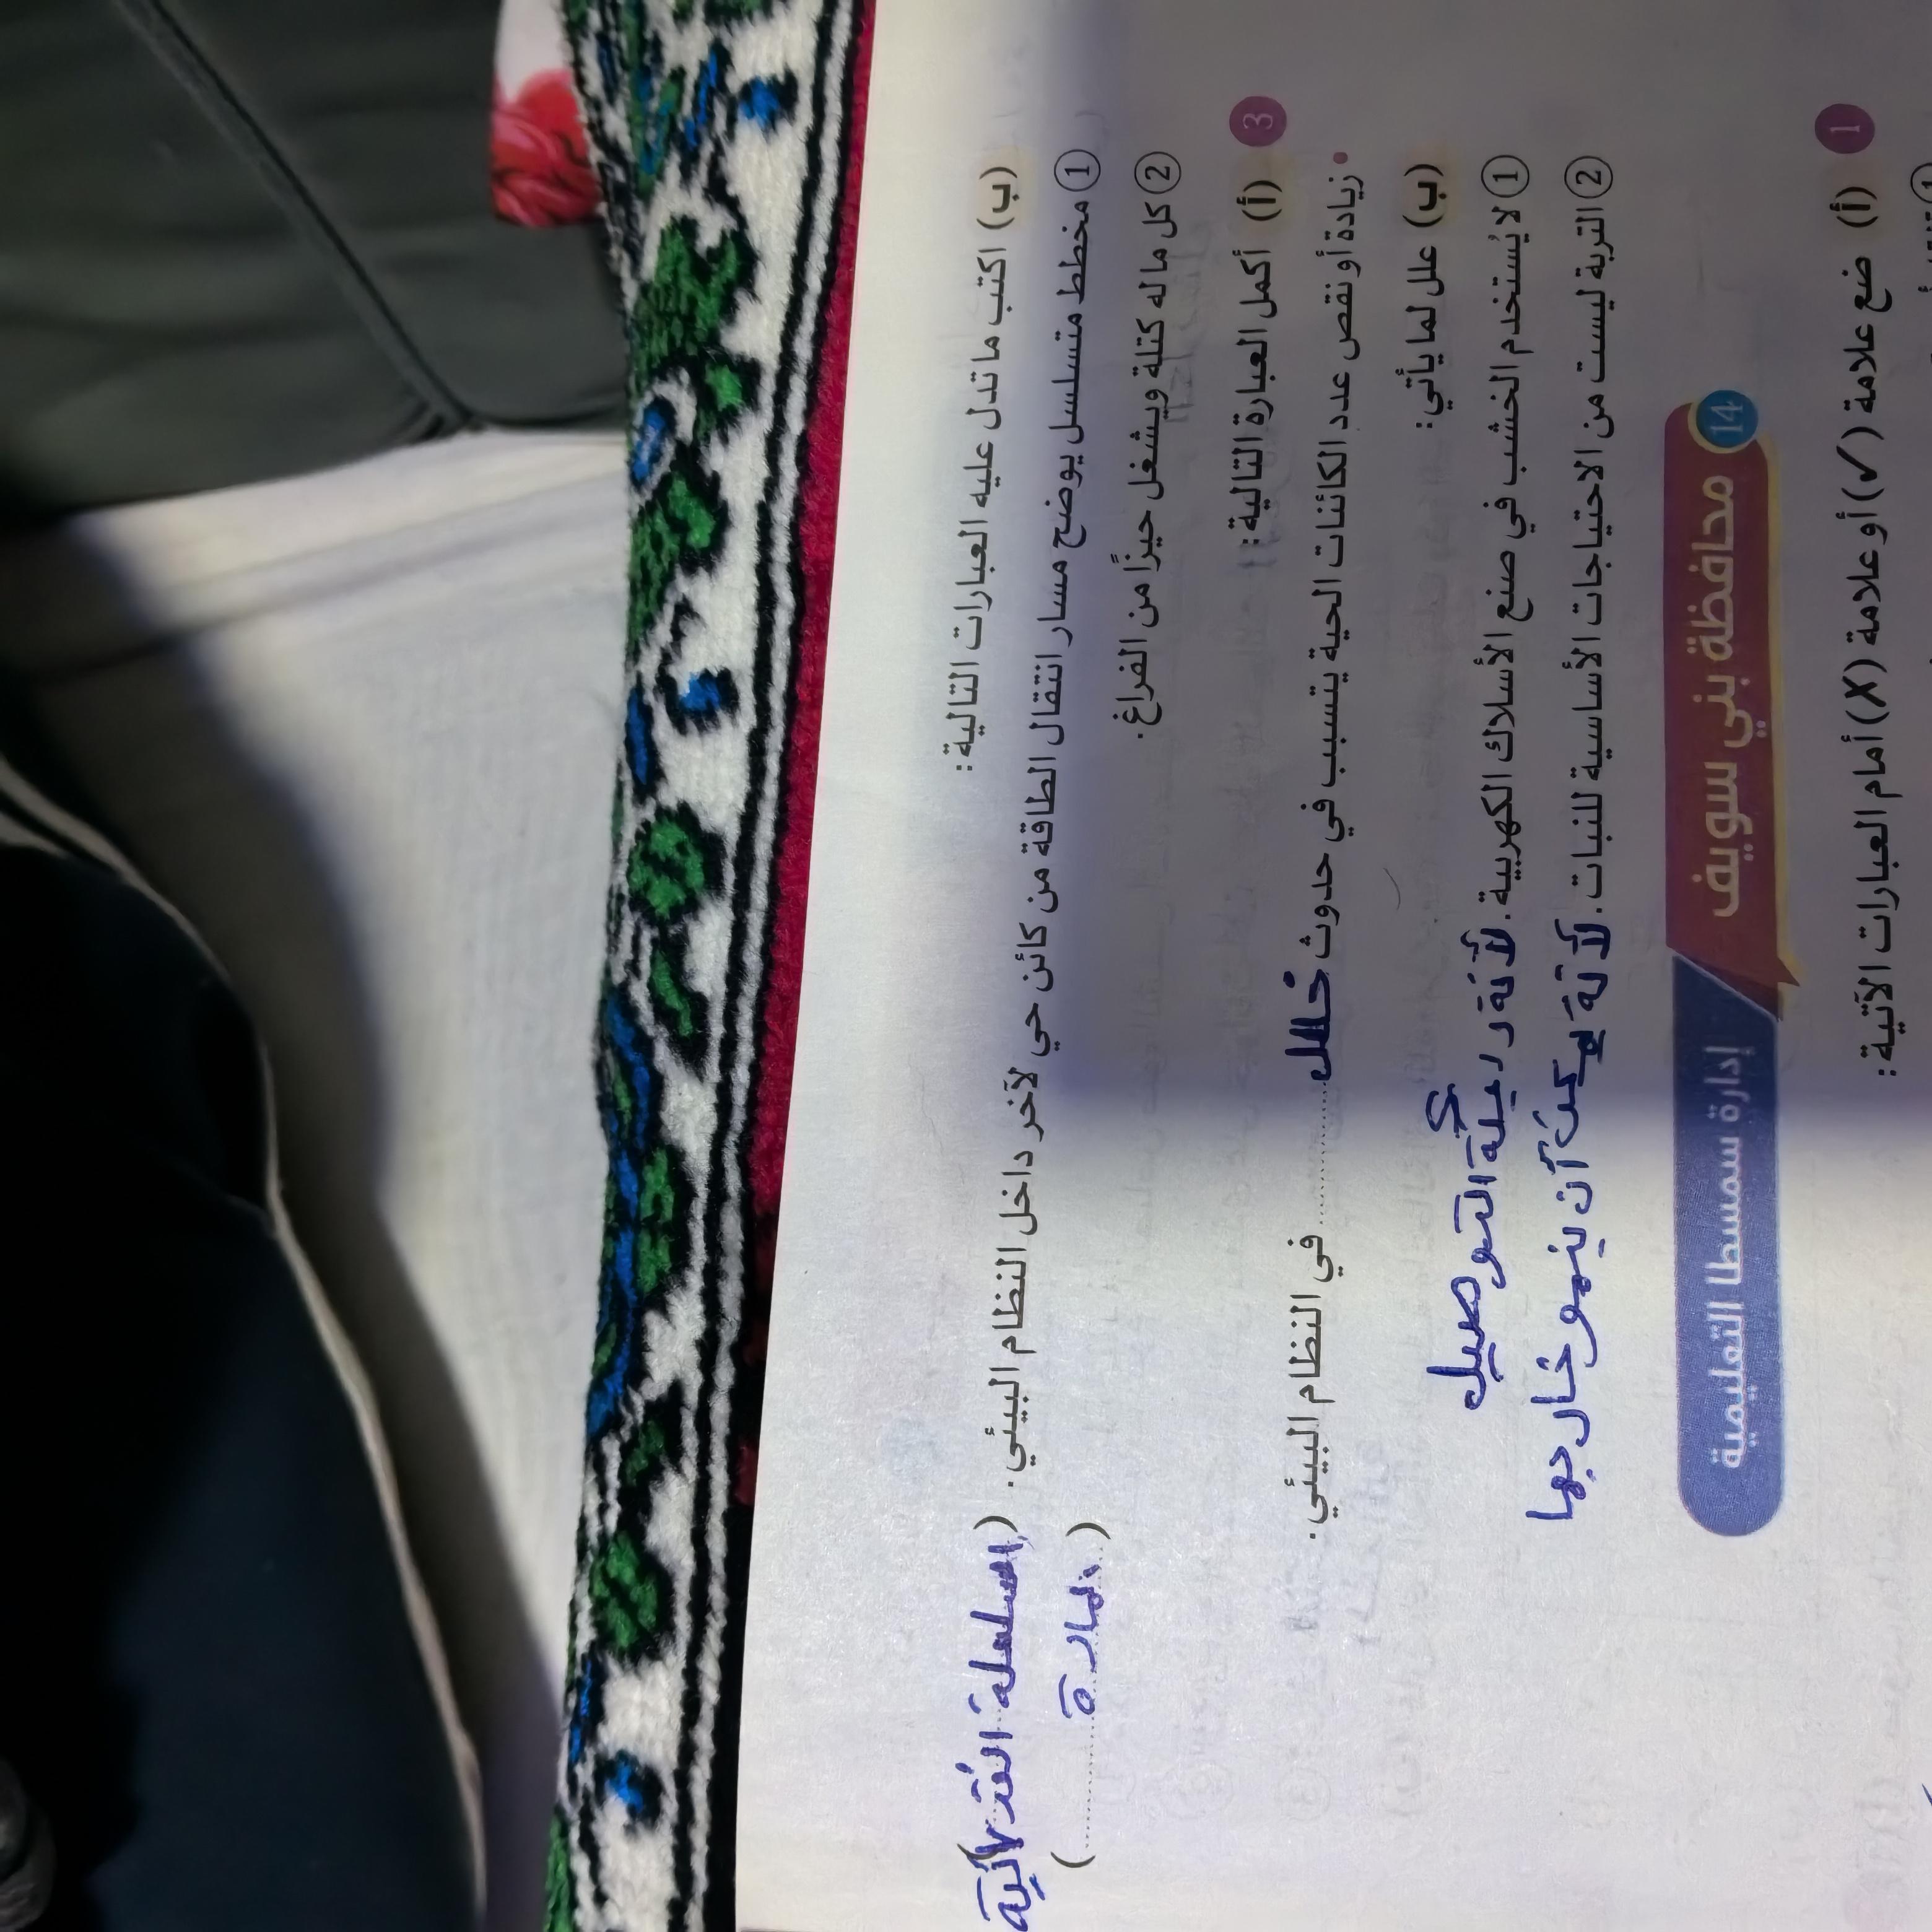 (ب) اكتب ما تدل عليه العبارات التالية:
① مخطط متسلسل يوضح مسار انتقال الطاقة من كائن حي لآخر داخل النظام البيئي. (السلسلة الغذائية)
② كل ما له كتلة ويشغل حيزًا من الفراغ. (المادة)
3 (أ) أكمل العبارة التالية:
• زيادة أو نقص عدد الكائنات الحية يتسبب في حدوث خلل في النظام البيئي.
(ب) علل لما يأتي:
① لا يُستخدم الخشب في صنع الأسلاك الكهربية. لأنة رديئة التوصيل
② التربة ليست من الاحتياجات الأساسية للنبات. لأنة يمكن أن ينمو خارجها
14 محافظة بني سويف إدارة سمسطا التعليمية
1 (أ) ضع علامة (✓) أو علامة (X) أمام العبارات الآتية: